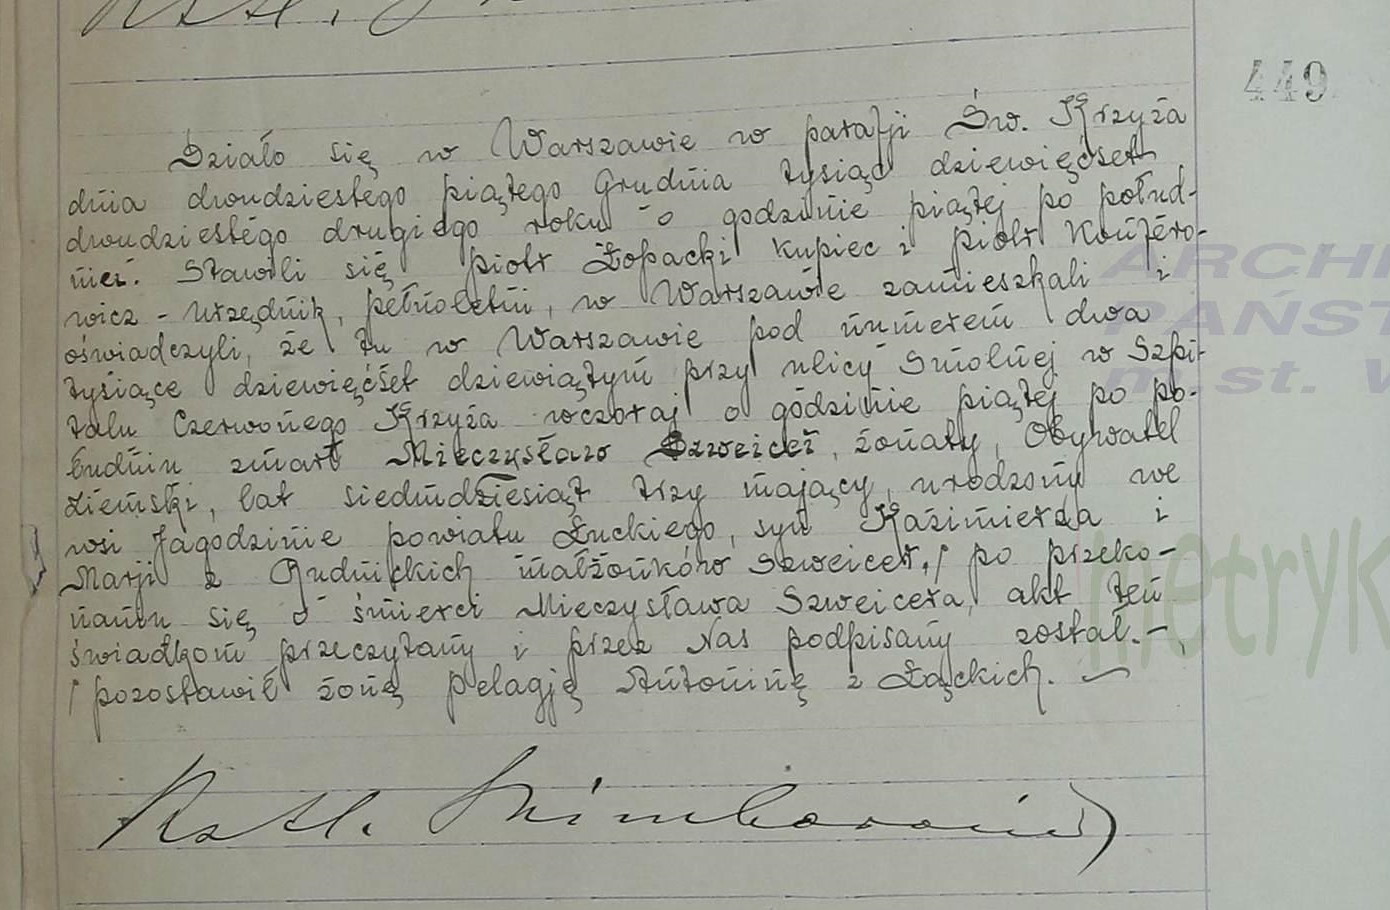 449
Działo się w Warszawie w parafji Św. Krzyża
dnia dwudziestego piątego Grudnia tysiąc dziewięćset
dwudziestego drugiego roku o godzinie piątej po połud-
niu. Stawili się Piotr Łopacki kupiec i Piotr
wicz - urzędnik, pełnoletni, w Warszawie zamieszkali i
oświadczyli, że tu w Warszawie pod numerem dwa
tysiące dziewięćset dziewiątym przy ulicy Smolnej w Szpi-
talu Czerwonego Krzyża wczoraj o godzinie piątej po po-
łudniu zmarł Mieczysław Szweicer, żonaty, Obywatel
Ziemski, lat siedmdziesiąt trzy mający, urodzony we
wsi Jagodzinie powiatu Łuckiego, syn Kazimierza i
Marji z Rudnickich małżonków Szweicer./ po przeko-
naniu się o śmierci Mieczysława Szweicera, akt ten
świadkom przeczytany i przez Nas podpisany został.-
/ pozostawił żonę Pelagję Antoninę z Łąckich.
ARCHI
PAŃST
m.st. W
metryk